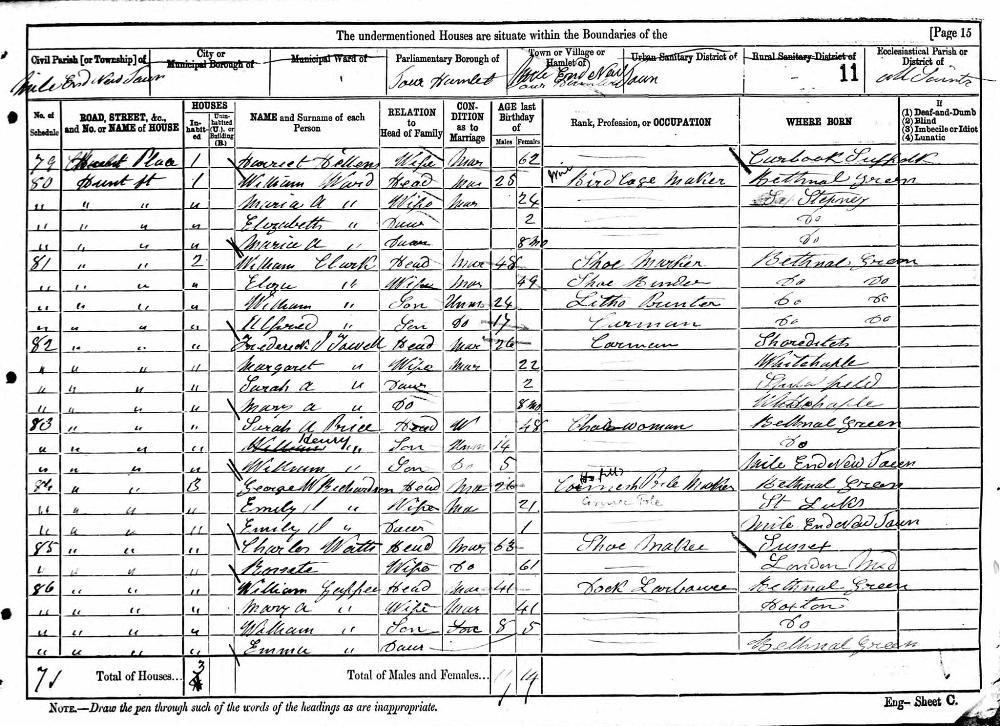 The undermentioned Houses are situate within the Boundaries of the [Page 15
Civil Parish [or Township] of
City or Municipal Borough of
Municipal Ward of
Parliamentary Borough of
Town or Village or Hamlet of
Urban Sanitary District of
Rural Sanitary District of
Ecclesiastical Parish or District of
Mile End New Town Tower Hamlets Mile End New Town 11 All Saints
No. of Schedule
ROAD, STREET, &c., and No. or NAME of HOUSE
HOUSES
Inhabited
Uninhabited (U.), or Building (B.)
NAME and Surname of each Person
RELATION to Head of Family
CONDITION as to Marriage
AGE last Birthday of
Males Females
Rank, Profession, or OCCUPATION
WHERE BORN
If (1) Deaf-and-Dumb (2) Blind (3) Imbecile or Idiot (4) Lunatic
79 Place 1 Harriet Wife Mar 62 Suffolk
80 Hunt St 1 William Ward Head Mar 25 Wire Bird Cage Maker Bethnal Green
" " " " Maria A " Wife Mar 24 Stepney
" " " " Elizabeth " Daur 2 Do
" " " " Maria A " Daur 8 mo Do
81 " " 2 William Clark Head Mar 48 Shoe Maker Bethnal Green
" " " " Eliza " Wife Mar 49 Shoe Binder Do Do
" " " " William " Son Unm 24 Litho Printer Do Do
" " " " Alfred " Son Do 17 Carman Do Do
82 " " " Frederick J Towell Head Mar 26 Carman Shoreditch
" " " " Margaret " Wife Mar 22 Whitchaple
" " " " Sarah A " Daur 2
" " " " Mary A " Do 8 mo Whitchaple
83 " " " Sarah A Price Head W 48 Charwoman Bethnal Green
" " " " William Henry " Son Unm 14 Do
" " " " William " Son Do 5 Mile End New Town
84 " " 3 George W Richardson Head Mar 26 Maker Bethnal Green
" " " " Emily J " Wife Ma 21 St Lukes
" " " " Emily J " Daur 1 Mile End New Town
85 " " " Charles Watts Head Mar 63 Shoe Maker Sussex
" " " " Wife Do 61 London Mid
86 " " " William Head Mar 41 Dock Bethnal Green
" " " " Mary A " Wife Mar 41 Hoxton
" " " " William " Son 8 5 Do
" " " " Emma " Daur Bethnal Green
Total of Houses... 3
Total of Males and Females... 11 14
NOTE.—Draw the pen through such of the words of the headings as are inappropriate.
Eng—Sheet C.